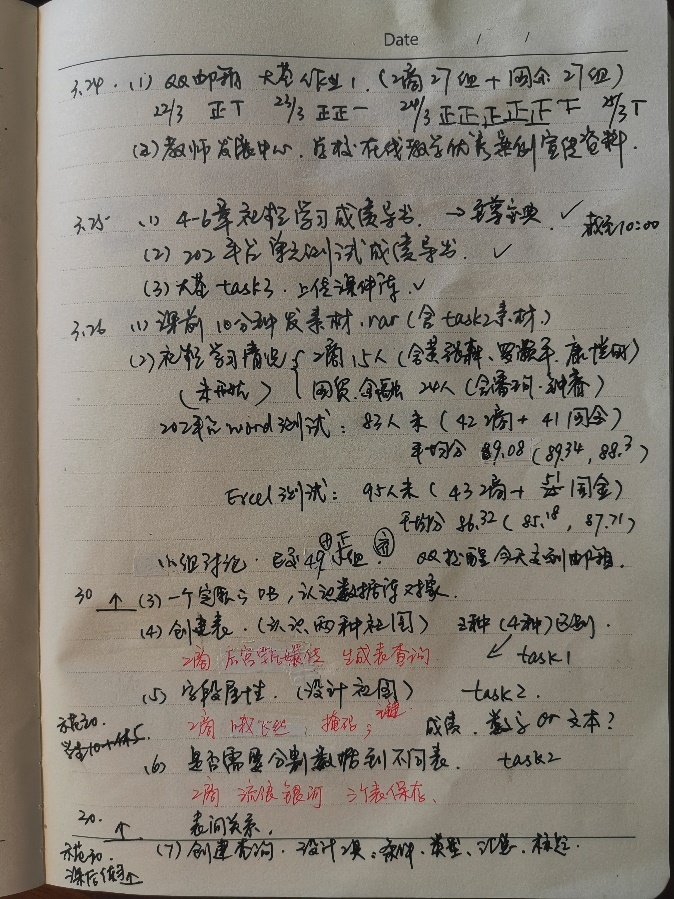 Date / /
3.24. (1) QQ邮箱 大基作业1. (2商27组 + 国金27组)
22/3 正丅 23/3 正正一 24/3 正正正正正下 25/3 丅
(2) 教师发展中心. 在线教学优秀案例宣传资料.
3.25 (1) 4-6章视频学习成绩导出. → ✓ 截至10:00
(2) 202平台单元测试成绩导出. ✓
(3) 大基task3. 上传课件. ✓
3.26 (1) 课前10分钟发素材.rar (含task2素材)
(2) 视频学习情况 { 2商15人
(未开始) 国贸.金融 24人
202平台word测试: 83人未 (42 2商 + 41 国金)
平均分 89.08 (89.34, 88.3)
Excel测试: 95人未 (43 2商 + 51 国金)
平均分 86.32 (85.18, 87.71)
小组讨论. 已交49组. QQ提醒今天交到邮箱.
30 ↑ (3) 一个实际的DB, 认识数据库对象.
(4) 创建表. (认识两种视图) 2种 (4种) 区别.
2商 生成表查询 ↙ task1
(5) 字段属性. (设计视图) task2.
示范20. 2商 掩码; 成绩. 数字 or 文本?
(6) 是否需要分割数据到不同表. task2
2商 流浪银河 分表保存.
20. ↑ 表间关系.
示范20. (7) 创建查询. 设计2类: 条件、类型、汇总、
课后练习↑